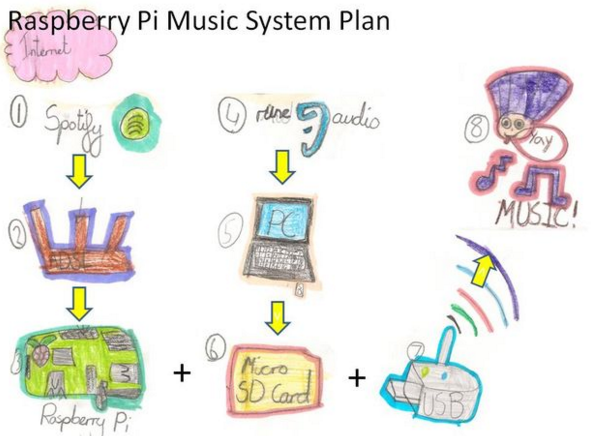 Raspberry Pi Music System Plan
Internet
1 Spotify
2 ADSL
3
Raspberry Pi
+
4 rune audio
5 PC
6 Micro
SD Card
+
7 USB
8 Yay
MUSIC!